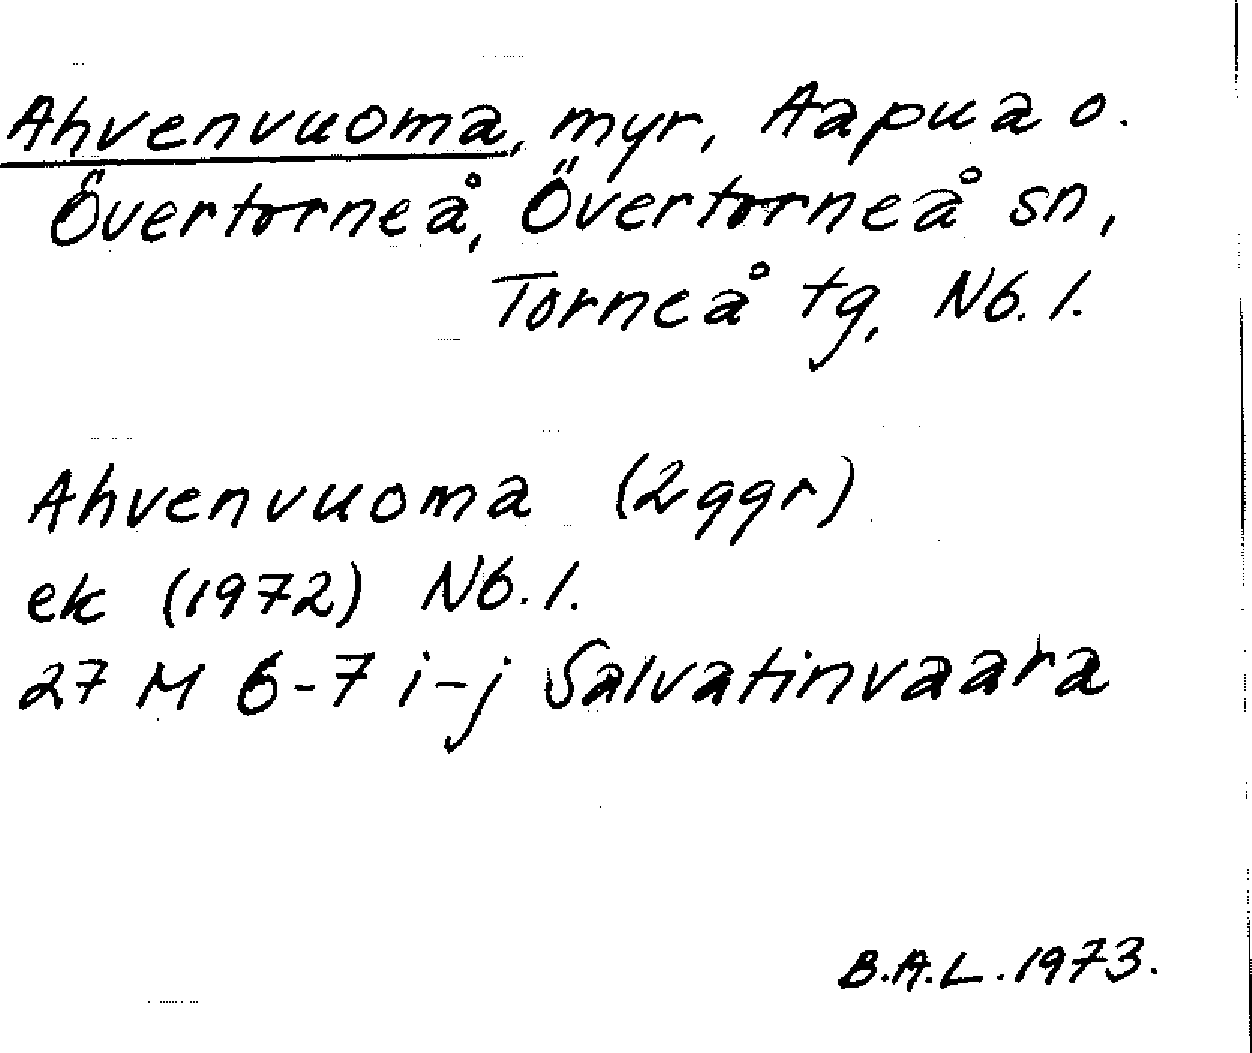 Ahvenvuoma, myr, Aapua o.
Övertorneå, Övertorneå sn,
Torneå tg, Nb. l.
Ahvenvuoma (2 ggr)
ek (1972) Nb. l.
27 M 6-7 i-j Salvatinvaara
B.A.L. 1973.